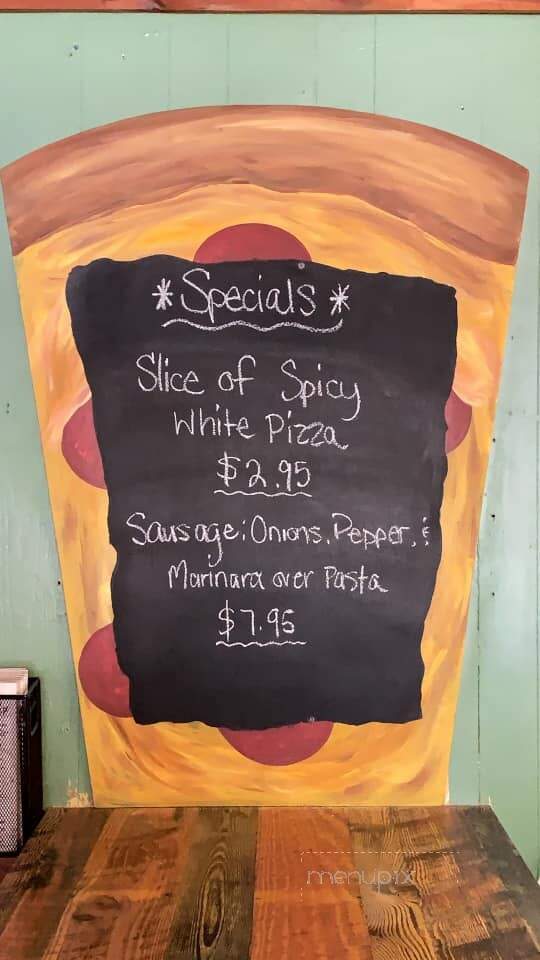 *Specials*
Slice of Spicy
White Pizza
$2.95
Sausage; Onions, Pepper, &
Marinara over Pasta
$7.95
menupix